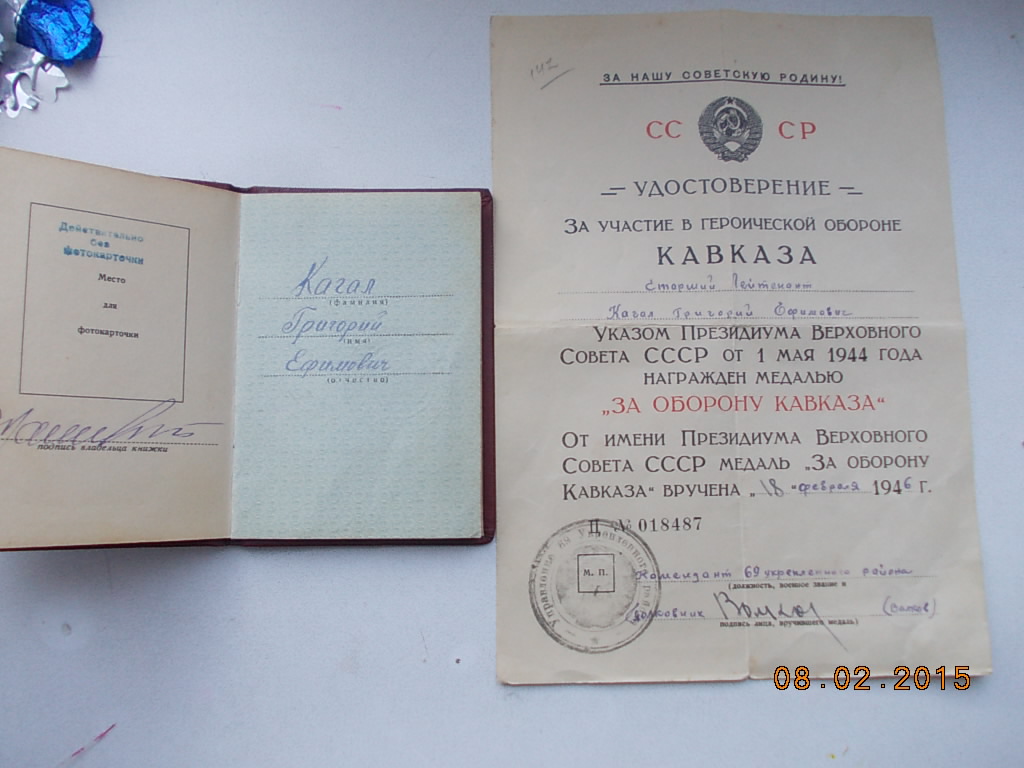 Действительно
без
фотокарточки
Место
для
фотокарточки
подпись владельца книжки
Кагал
(фамилия)
Григорий
(имя)
Ефимович
(отчество)
142
ЗА НАШУ СОВЕТСКУЮ РОДИНУ!
СС СР
— УДОСТОВЕРЕНИЕ —
ЗА УЧАСТИЕ В ГЕРОИЧЕСКОЙ ОБОРОНЕ
КАВКАЗА
Старший Лейтенант
Кагал Григорий Ефимович
УКАЗОМ ПРЕЗИДИУМА ВЕРХОВНОГО
СОВЕТА СССР ОТ 1 МАЯ 1944 ГОДА
НАГРАЖДЕН МЕДАЛЬЮ
„ЗА ОБОРОНУ КАВКАЗА“
ОТ ИМЕНИ ПРЕЗИДИУМА ВЕРХОВНОГО
СОВЕТА СССР МЕДАЛЬ „ЗА ОБОРОНУ
КАВКАЗА“ ВРУЧЕНА „18“ февраля 1946 г.
Ц № 018487
М. П.
Комендант 69 укрепленного района
(должность, военное звание и
полковник
подпись лица, вручившего медаль)
08.02.2015